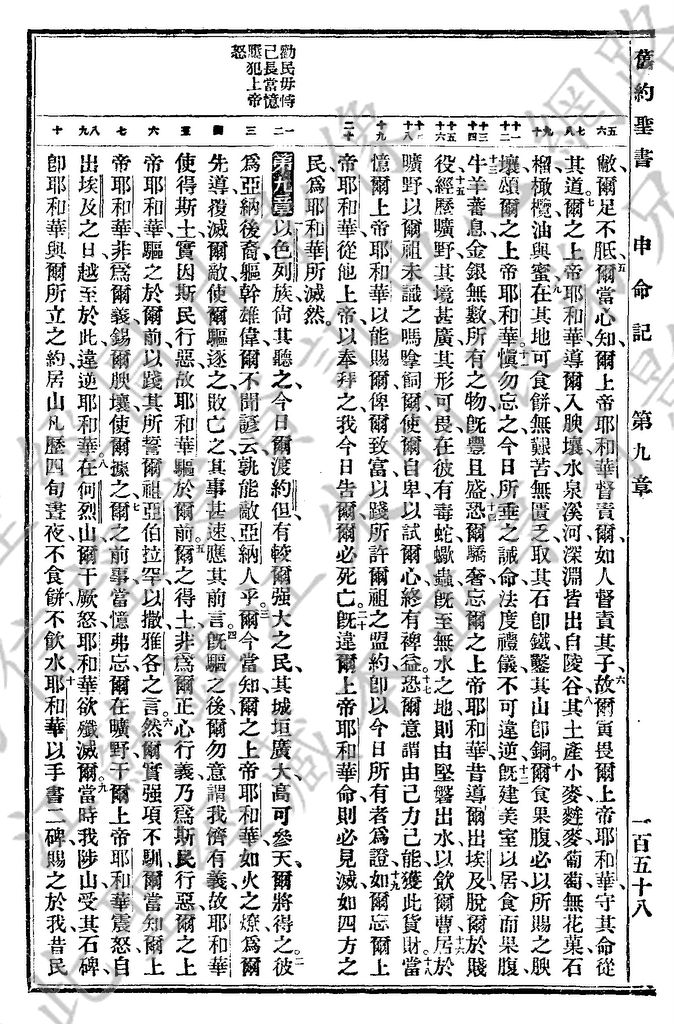 舊約聖書 申命記 第九章 一百五十八
敝爾足不胝爾當心知爾上帝耶和華督責爾如人督責其子故爾寅畏爾上帝耶和華守其命從
其道爾之上帝耶和華導爾入腴壤水泉溪河深淵皆出自陵谷其土產小麥麰麥葡萄無花菓石
榴橄欖油與蜜在其地可食餅無艱苦無匱乏取其石卽鐵鑿其山卽銅爾食果腹必以所賜之腴
壤頌爾之上帝耶和華愼勿忘之今日所垂之誡命法度禮儀不可違逆旣建美室以居食而果腹
牛羊蕃息金銀無數所有之物旣豐且盛恐爾驕奢忘爾之上帝耶和華昔導爾出埃及脫爾於賤
役經歷曠野其境甚廣其形可畏在彼有毒蛇蠍蟲旣至無水之地則由堅磐出水以飲爾曹居於
曠野以爾祖未識之嗎嗱飼爾使爾自卑以試爾心終有裨益恐爾意謂由己力己能獲此貨財當
憶爾上帝耶和華以能賜爾俾爾致富以踐所許爾祖之盟約卽以今日所有者為證如爾忘爾上
帝耶和華從他上帝以奉拜之我今日吿爾爾必死亡旣違爾上帝耶和華命則必見滅如四方之
民為耶和華所滅然
第九章以色列族尙其聽之今日爾渡約但有較爾强大之民其城垣廣大高可參天爾將得之彼
為亞納後裔軀幹雄偉爾不聞諺云孰能敵亞納人乎爾今當知爾之上帝耶和華如火之燎為爾
先導覆滅爾敵使爾驅逐之敗亡之其事甚速應其前言旣驅之後爾勿意謂我儕有義故耶和華
使得斯土實因斯民行惡故耶和華驅於爾前爾之得土非為爾正心行義乃為斯民行惡爾之上
帝耶和華驅之於爾前以踐其所誓爾祖亞伯拉罕以撒雅各之言然爾實强項不馴爾當知爾上
帝耶和華非為爾義錫爾腴壤使爾據之爾之前事當憶弗忘爾在曠野干爾上帝耶和華震怒自
出埃及之日越至於此違逆耶和華在何烈山爾干厥怒耶和華欲殲滅爾當時我陟山受其石碑
卽耶和華與爾所立之約居山凡歷四旬晝夜不食餅不飲水耶和華以手書二碑賜之於我昔民
勸民毋恃
己長當憶
應犯上帝
怒